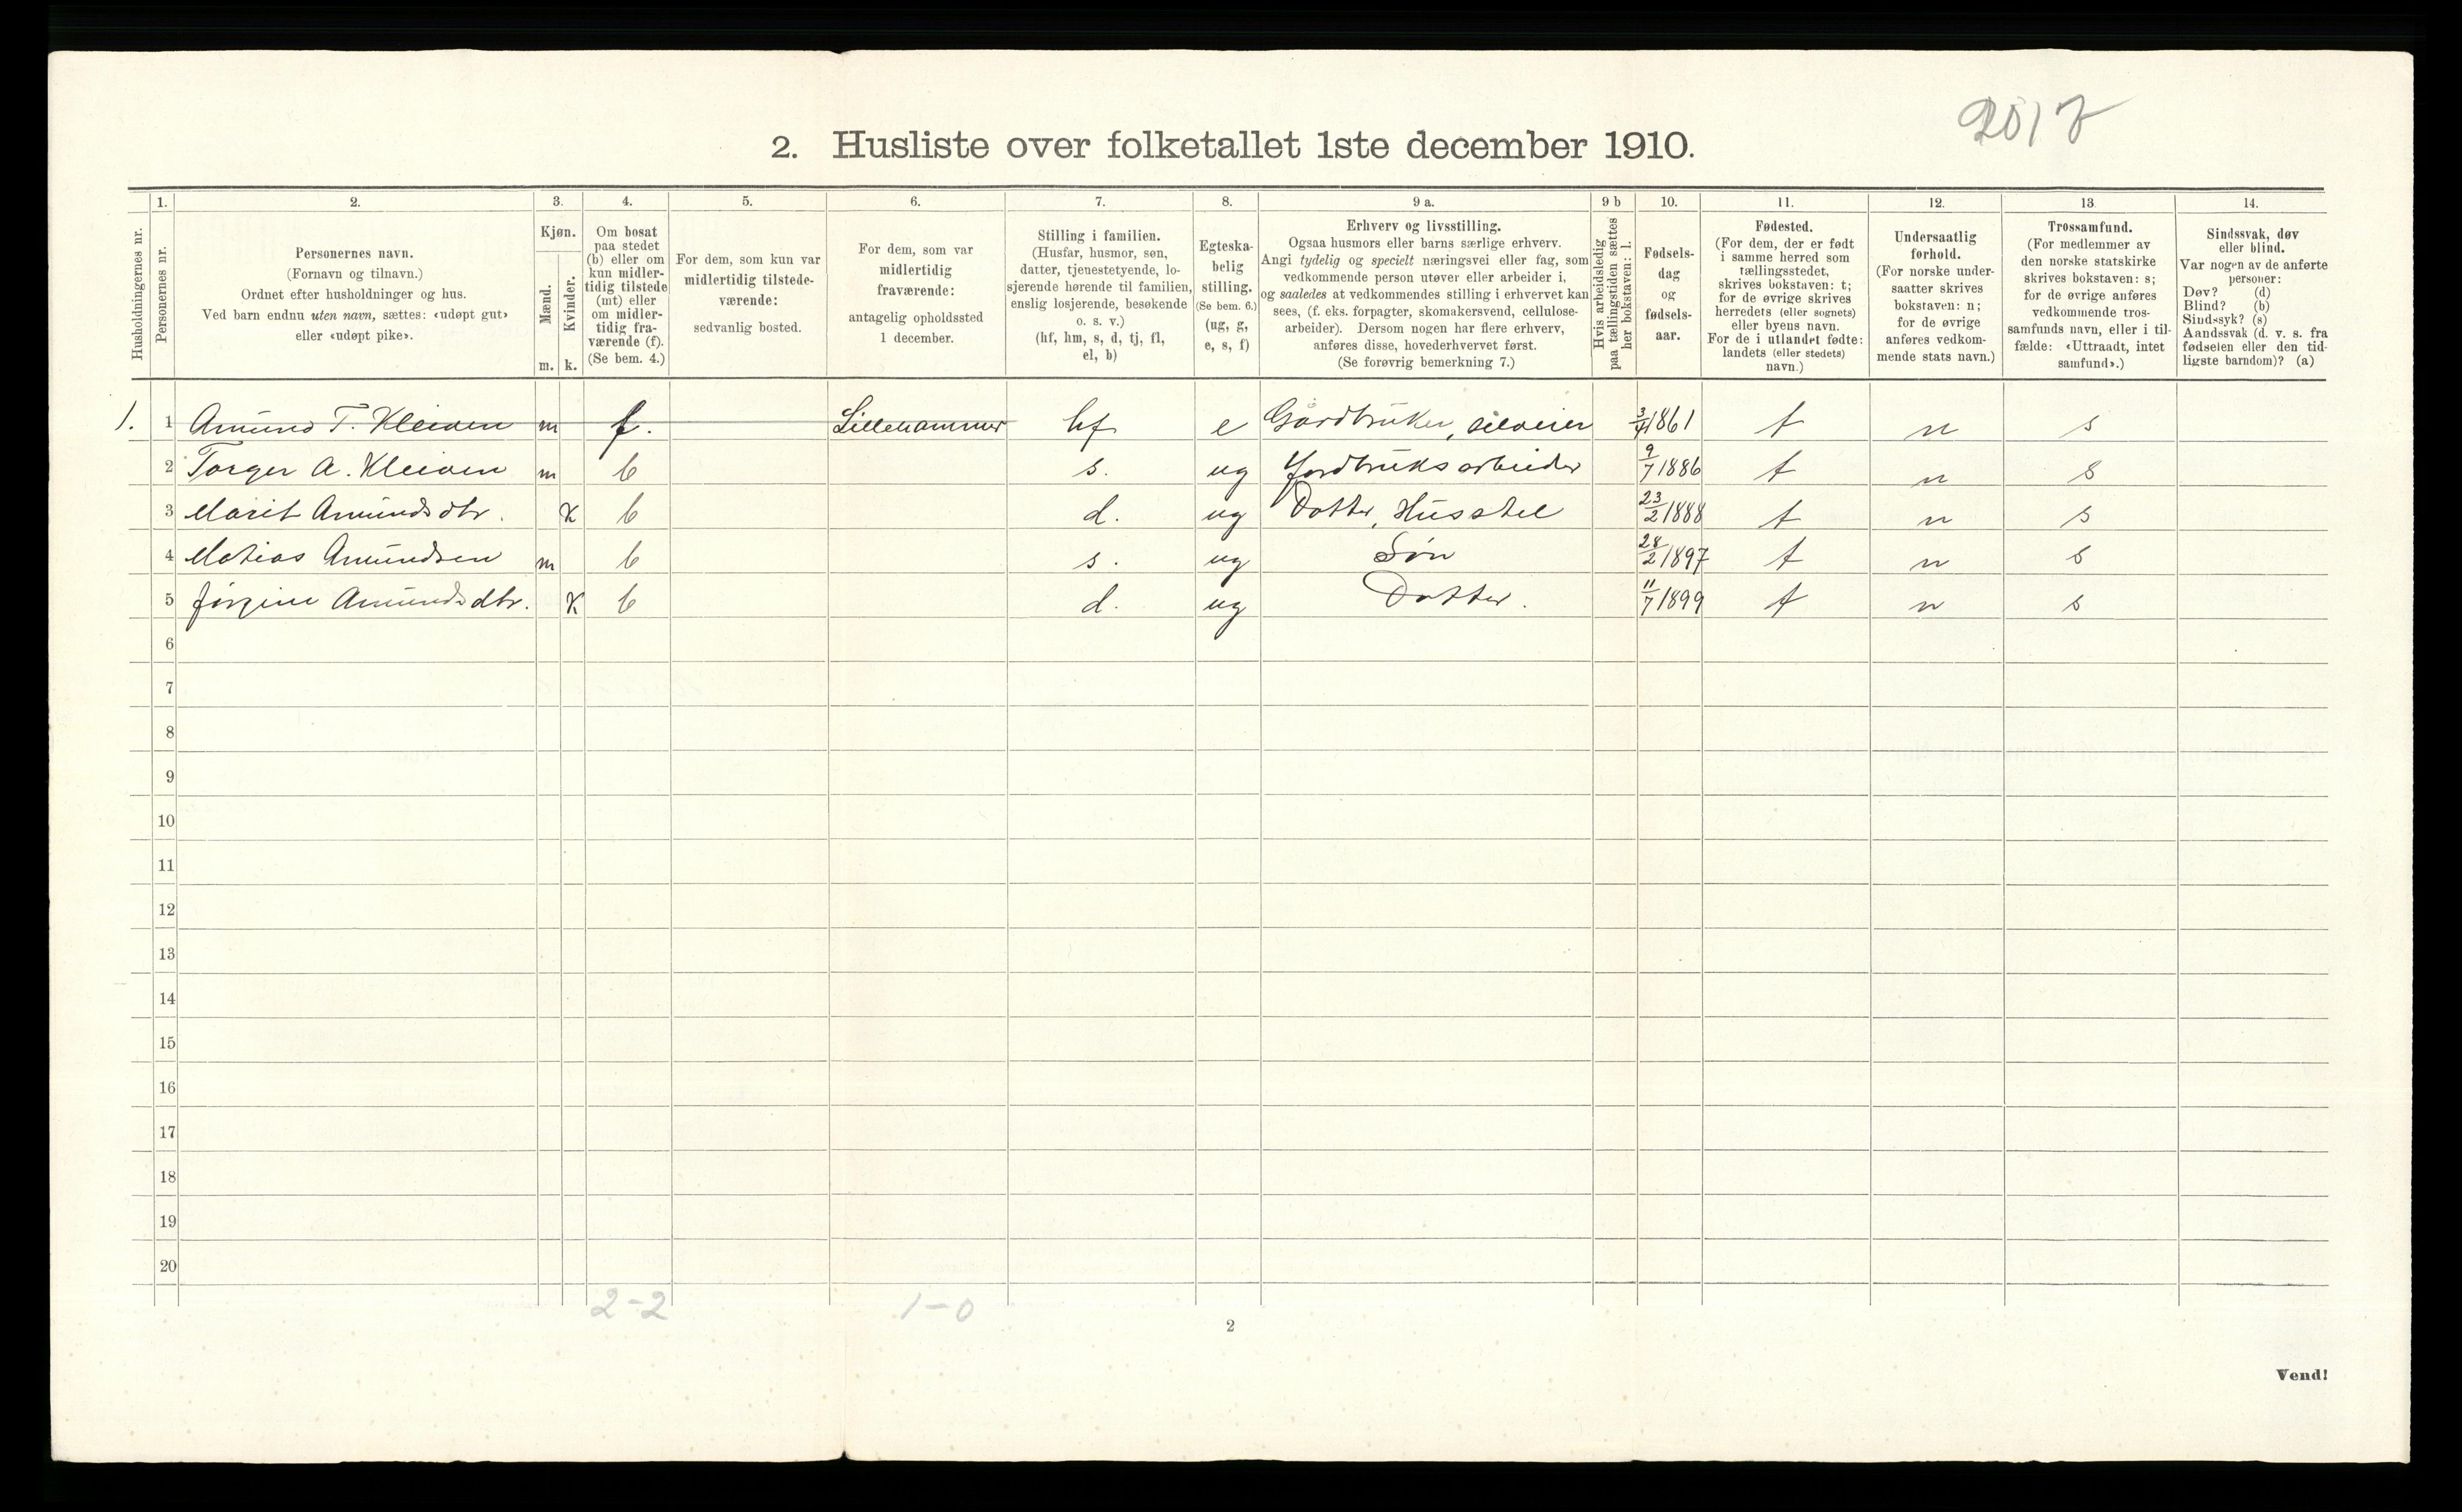 2017
2. Husliste over folketallet 1ste december 1910.
1. 2. 3. 4. 5. 6. 7. 8. 9 a. 9 b 10. 11. 12. 13 14.
Husholdningernes nr.
Personernes nr.
Personernes navn.
(Fornavn og tilnavn.)
Ordnet efter husholdninger og hus.
Ved barn endnu uten navn, sættes: «udøpt gut»
eller «udøpt pike».
Kjøn.
Mænd.
Kvinder.
m. k.
Om bosat
paa stedet
(b) eller om
kun midler-
tidig tilstede
(mt) eller
om midler-
tidig fra-
værende (f).
(Se bem. 4.)
For dem, som kun var
midlertidig tilstede-
værende:
sedvanlig bosted.
For dem, som var
midlertidig
fraværende:
antagelig opholdssted
1 december.
Stilling i familien.
(Husfar, husmor, søn,
datter, tjenestetyende, lo-
sjerende hørende til familien,
enslig losjerende, besøkende
o. s. v.)
(hf, hm, s, d, tj, fl,
el, b)
Egteska-
belig
stilling.
(Se bem. 6.)
(ug, g,
e, s, f)
Erhverv og livsstilling.
Ogsaa husmors eller barns særlige erhverv.
Angi tydelig og specielt næringsvei eller fag, som
vedkommende person utøver eller arbeider i,
og saaledes at vedkommendes stilling i erhvervet kan
sees, (f. eks. forpagter, skomakersvend, cellulose-
arbeider). Dersom nogen har flere erhverv,
anføres disse, hovederhvervet først.
(Se forøvrig bemerkning 7.)
Hvis arbeidsledig
paa tællingstiden sættes
her bokstaven: l.
Fødsels-
dag
og
fødsels-
aar.
Fødested.
(For dem, der er født
i samme herred som
tællingsstedet,
skrives bokstaven: t;
for de øvrige skrives
herredets (eller sognets)
eller byens navn.
For de i utlandet fødte:
landets (eller stedets)
navn.)
Undersaatlig
forhold.
(For norske under-
saatter skrives
bokstaven: n;
for de øvrige
anføres vedkom-
mende stats navn.)
Trossamfund.
(For medlemmer av
den norske statskirke
skrives bokstaven: s;
for de øvrige anføres
vedkommende tros-
samfunds navn, eller i til-
fælde: «Uttraadt, intet
samfund».)
Sindssvak, døv
eller blind.
Var nogen av de anførte
personer:
Døv? (d)
Blind? (b)
Sindssyk? (s)
Aandssvak (d. v. s. fra
fødselen eller den tid-
ligste barndom)? (a)
1. 1 Amund T. Kleiven m f. Lillehammer hf e Gårdbruker, selveier 3/4 1861 t n s
2 Torger A. Kleiven m b s. ug Jordbruksarbeider 9/7 1886 t n s
3 Marit Amundsdtr. k b d. ug Datter, Husstel 23/2 1888 t n s
4 Matias Amundsen m b s. ug Søn 28/2 1897 t n s
5 Jørgine Amundsdtr. k b d. ug Datter. 11/7 1899 t n s
6
7
8
9
10
11
12
13
14
15
16
17
18
19
20
2-2 1-0
2
Vend!